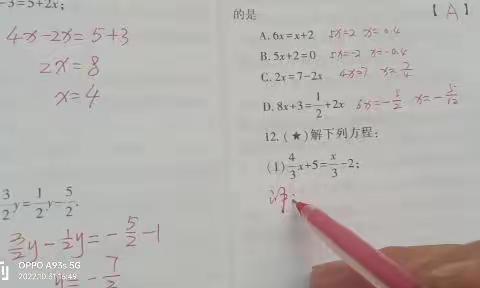 -3=5+2x;
4x-2x=5+3
2x=8
x=4
3/2 y = 1/2 y - 5/2.
3/2 y - 1/2 y = -5/2 -1
y = -7/2
OPPO A93s 5G
2022.10.31 16:49
的是 【A】
A. 6x=x+2 5x=2 x=0.4
B. 5x+2=0 5x=-2 x=-0.4
C. 2x=7-2x 4x=7 x=7/4
D. 8x+3=1/2+2x 6x=-5/2 x=-5/12
12. (★)解下列方程:
(1) 4/3 x+5= x/3 -2;
解: